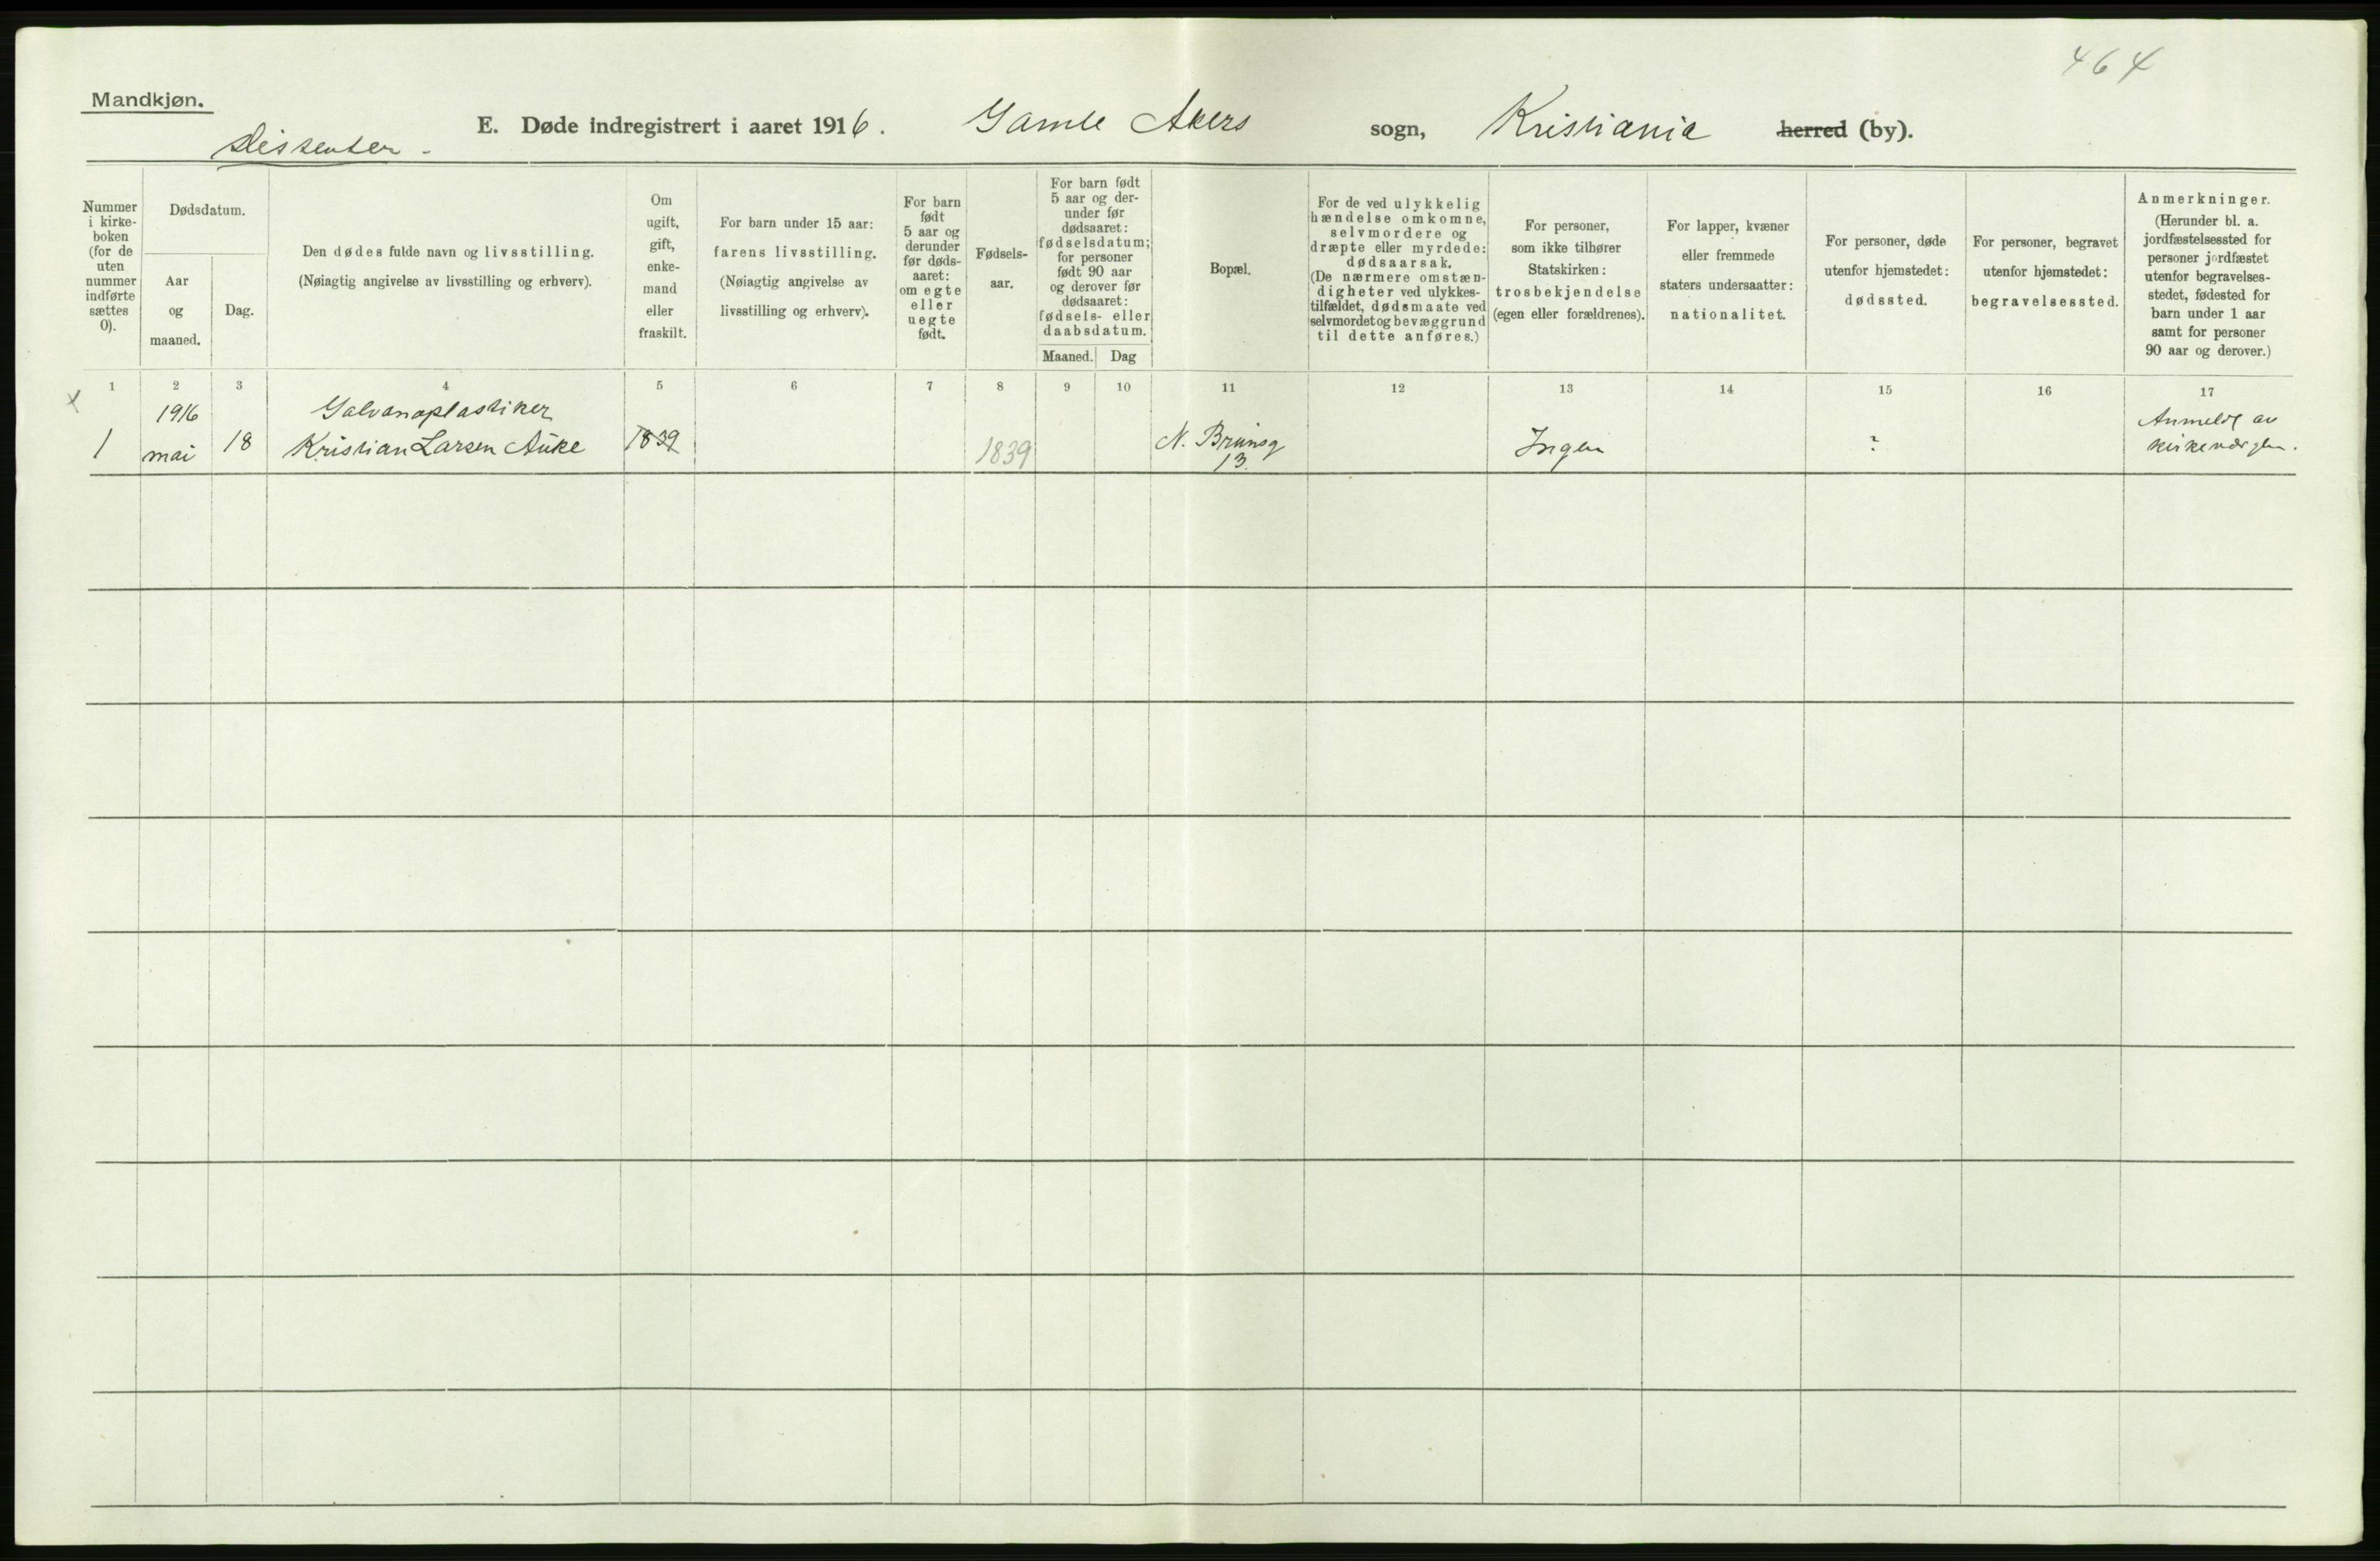 464
Mandkjøn.
E. Døde indregistrert i aaret 1916. Gamle Akers sogn, Kristiania herred (by).
Dissenter -
Nummer i kirke-boken (for de uten nummer indførte sættes 0).
Dødsdatum.
Aar og maaned.
Dag.
Den dødes fulde navn og livsstilling.
(Nøiagtig angivelse av livsstilling og erhverv).
Om ugift, gift, enke-mand eller fraskilt.
For barn under 15 aar:
farens livsstilling.
(Nøiagtig angivelse av
livsstilling og erhverv).
For barn
født
5 aar og
derunder
før døds-
aaret:
om egte
eller
uegte
født.
Fødsels-
aar.
For barn født
5 aar og der-
under før
dødsaaret:
fødselsdatum;
for personer
født 90 aar
og derover før
dødsaaret:
fødsels- eller
daabsdatum.
Maaned. Dag
Bopæl.
For de ved ulykkelig
hændelse omkomne,
selvmordere og
dræpte eller myrdede:
dødsaarsak.
(De nærmere omstæn-
digheter ved ulykkes-
tilfældet, dødsmaate ved
selvmordet og bevæggrund
til dette anføres.)
For personer,
som ikke tilhører
Statskirken:
trosbekjendelse
(egen eller forældrenes).
For lapper, kvæner
eller fremmede
staters undersaatter:
nationalitet.
For personer, døde
utenfor hjemstedet:
dødssted.
For personer, begravet
utenfor hjemstedet:
begravelsessted.
Anmerkninger.
(Herunder bl. a.
jordfæstelsessted for
personer jordfæstet
utenfor begravelses-
stedet, fødested for
barn under 1 aar
samt for personer
90 aar og derover.)
1 2 3 4 5 6 7 8 9 10 11 12 13 14 15 16 17
x 1916 Galvanoplastiker Anmeldt av
1 mai 18 Kristian Larsen Auke 1839 1839 N. Brunsg Ingen ? kirkevergen.
13.